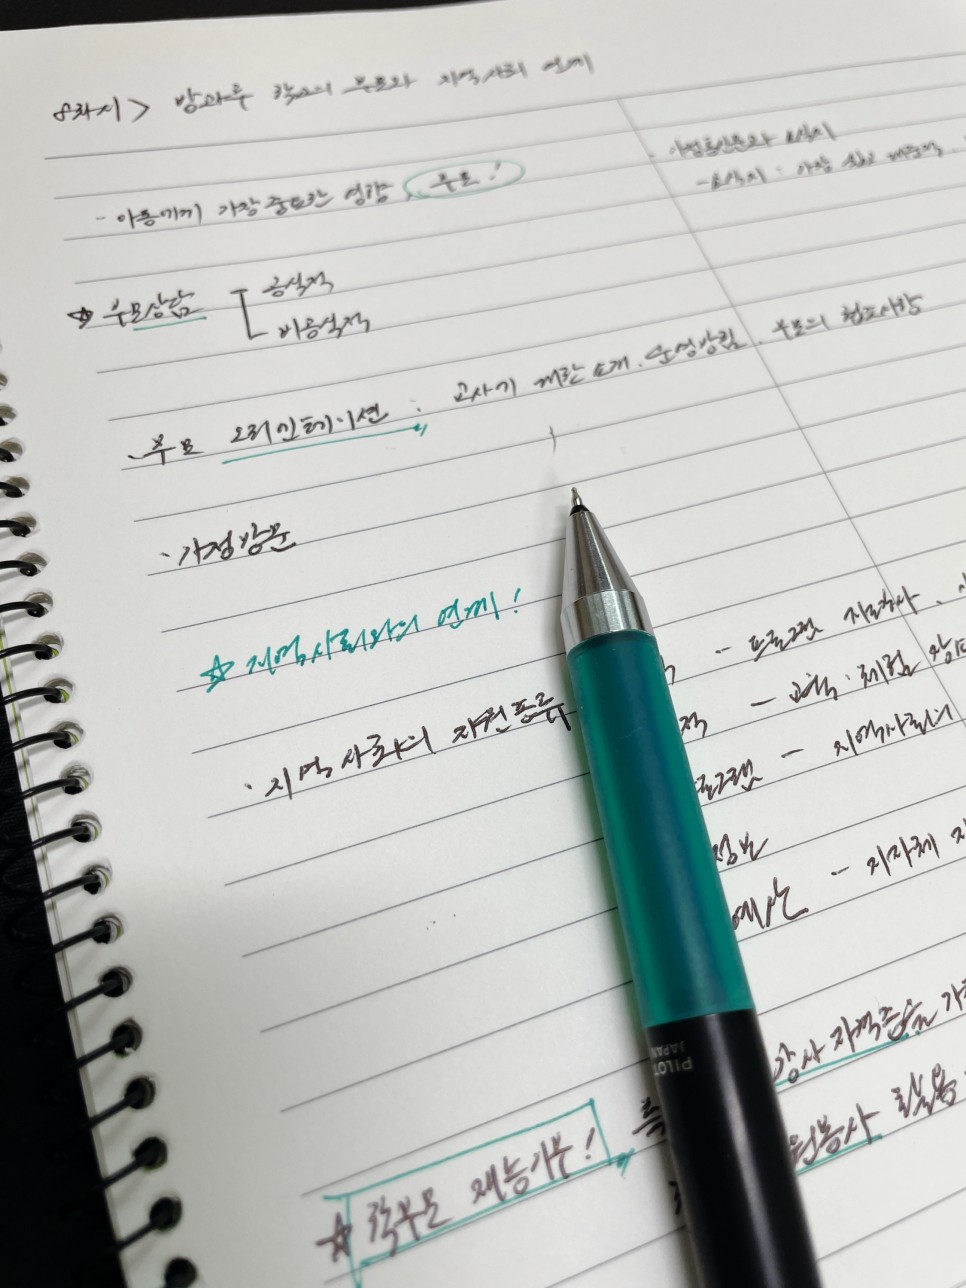 8차시> 방과후 학교의 부모와 지역사회 연계
- 아동에게 가장 중요한 영향, 부모!
· 가정통신문과 소식지
- 소식지 : 가장 쉽고
☆ 부모상담
공식적
비공식적
· 부모 오리엔테이션 : 교사기 재관 소개, 운영방침, 부모의 협조사항
· 가정방문
☆ 지역사회와의 연계!
· 지역사회의 자원 종류
적 - 프로그램 지도강사,
적 - 교육·체험
프로그램 - 지역사회의
정보
예산 - 지자체
강사 자격증을
☆ 학부모 재능기부!
원봉사 활용
PILOT
JAPAN